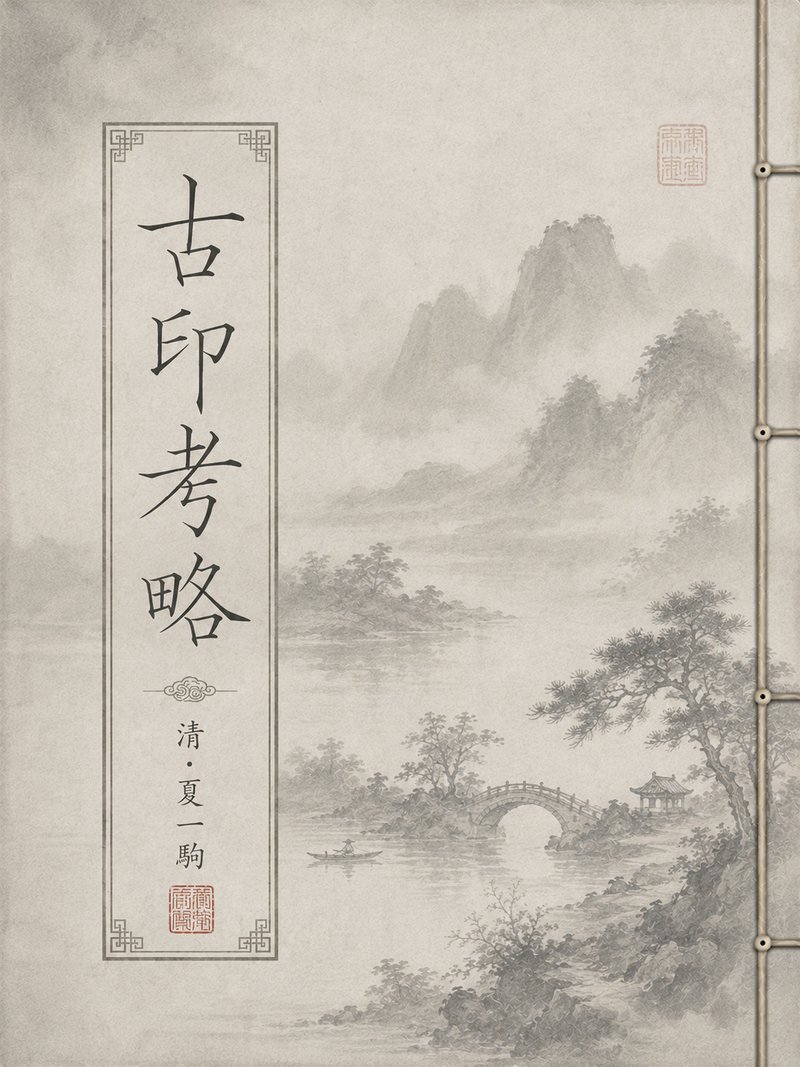 古印考略
清·夏一駒